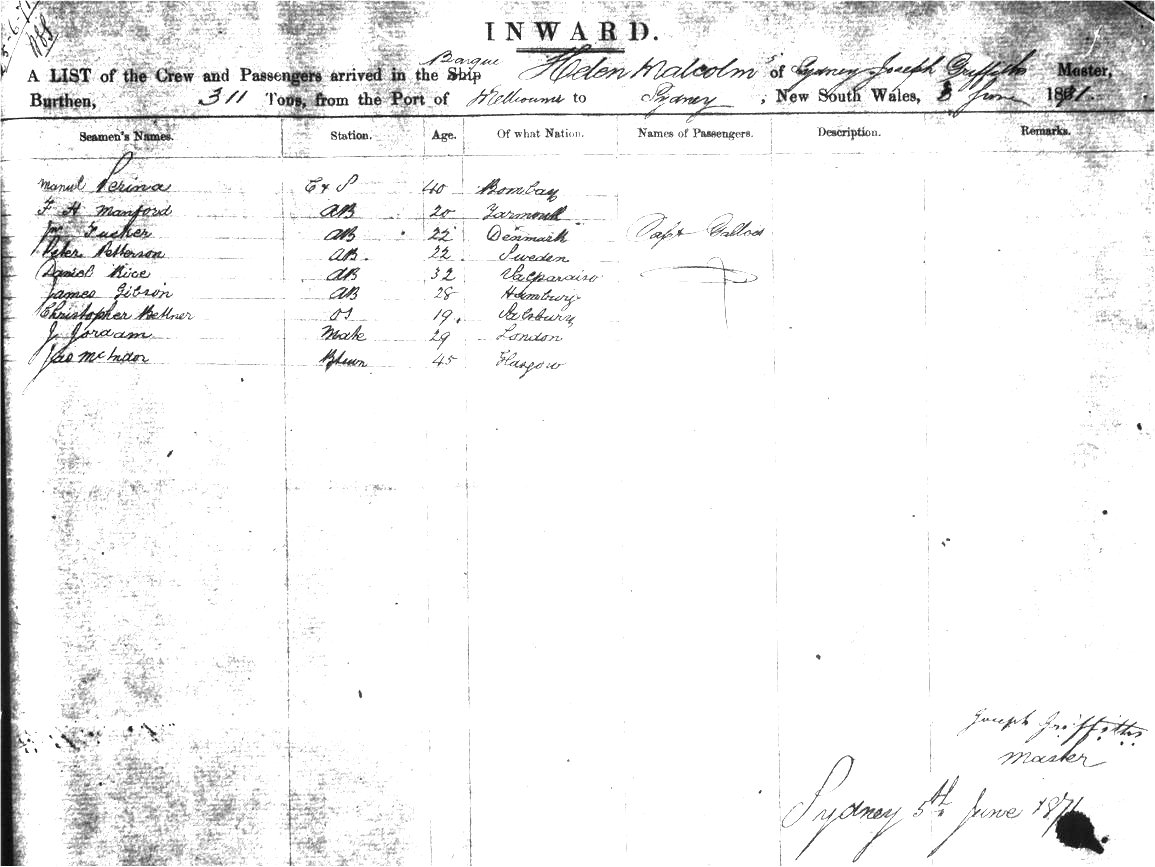 5-6-71
188
INWARD.
Barque
A LIST of the Crew and Passengers arrived in the Ship Helen Malcolm of Sydney Joseph Griffiths Master,
Burthen, 311 Tons, from the Port of Melbourne to Sydney, New South Wales, 3 June 1871.
Seamen's Names. Station. Age. Of what Nation. Names of Passengers. Description. Remarks.
Manuel Perina C & S 40 Bombay
F H Manford AB 20 Yarmouth
Wm Tucker AB 22 Denmark Capt
Peter Petterson AB. 22. Sweden
Daniel Rice AB 32 Valparaiso
James Gibson AB 28 Hamburg
Christopher OS 19. Salsbury
J. Jordam Mate 29 London
Jas 45 Glasgow
Joseph Griffiths
Master
Sydney 5th June 1871